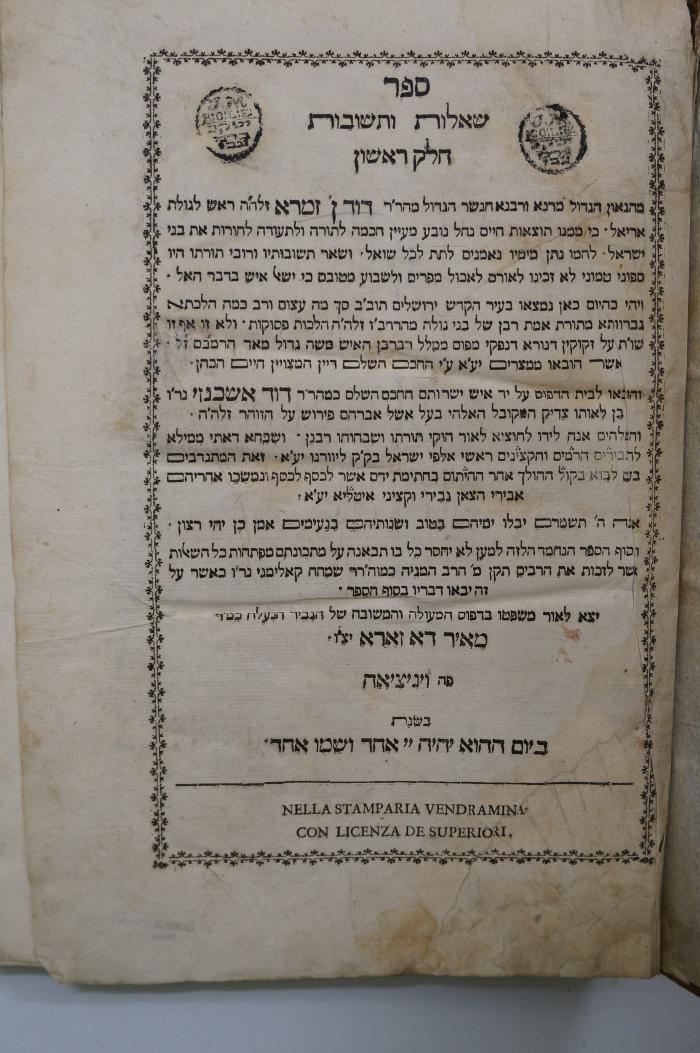 ספר
שאלות ותשובות
חלק ראשון
מהגאון הגדול מרנא ורבנא הנשר הגדול מהר״ר דוד ן׳ זמרא זלה״ה ראש לגולת
אריאל · כי ממנו תוצאות חיים נחל נובע מעיין חכמה לתורה ולתעודה להורות את בני
ישראל · לחמו נתן מימיו נאמנים לתת לכל שואל · ושאר תשובותיו ורובי תורתו היו
ספוני טמוני לא זכינו לאורם לאכול מפרים ולשבוע מטובם כי ישא איש בדבר האל ·
ויהי כהיום כאן נמצאו בעיר הקדש ירושלים תוב״ב סך מה עצום ורב כמה הלכתא
גברוותא מתורת אמת רבן של בני גולה מהרדב״ז זלה״ה הלכות פסוקות · ולא זו אף זו
שו״ת על זקוקין דנורא דנפקי מפום ממלל רברבן האיש משה גדול מאד הרמב״ם זל ·
אשר הובאו ממצרים יע״א ע״י החכם השלם דיין המצויין חיים הכהן ·
והובאו לבית הדפוס על יד איש ישר ותם החכם השלם כמהר״ר דוד אשכנזי נר״ו
בן לאותו צדיק המקובל האלהי בעל אשל אברהם פירוש על הזוהר זלה״ה ·
והאלהים אנה לידו להוציא לאור חוקי תורתו ושבחוהו רבנן · ושבחא דאתי ממילא
לחבירים הרמים והקצינים ראשי אלפי ישראל בק״ק ליוורנו יע״א · זאת המתנדבים
בם לבוא בקול ההולך אחר החיתום בחתימת ידם אשר לכסף לכסף ונמשכו אחריהם
אבירי הצאן גבירי וקציני איטליא יע״א ·
אתה ה׳ תשמרם יבלו ימיהם בטוב ושנותיהם בנעימים אמן כן יהי רצון ·
ובסוף הספר הנחמד הלזה למען לא יחסר כל בו תבאנה על מתכונתם מפתחות כל השאלות
אשר לזכות את הרבים תקן מ׳ הרב המגיה כמוה״רר שמחה קאלימני נר״ו כאשר על
זה יבאו דבריו בסוף הספר ·
יצא לאור משפטו בדפוס המעולה והמשובה של הגביר הנעלה כמ״ר
מאיר דא זארא יצ״ו ·
פה ויניציאה
בשנת
ביום ההוא יהיה יי אחד ושמו אחד ·
NELLA STAMPARIA VENDRAMINA
CON LICENZA DE SUPERIORI.